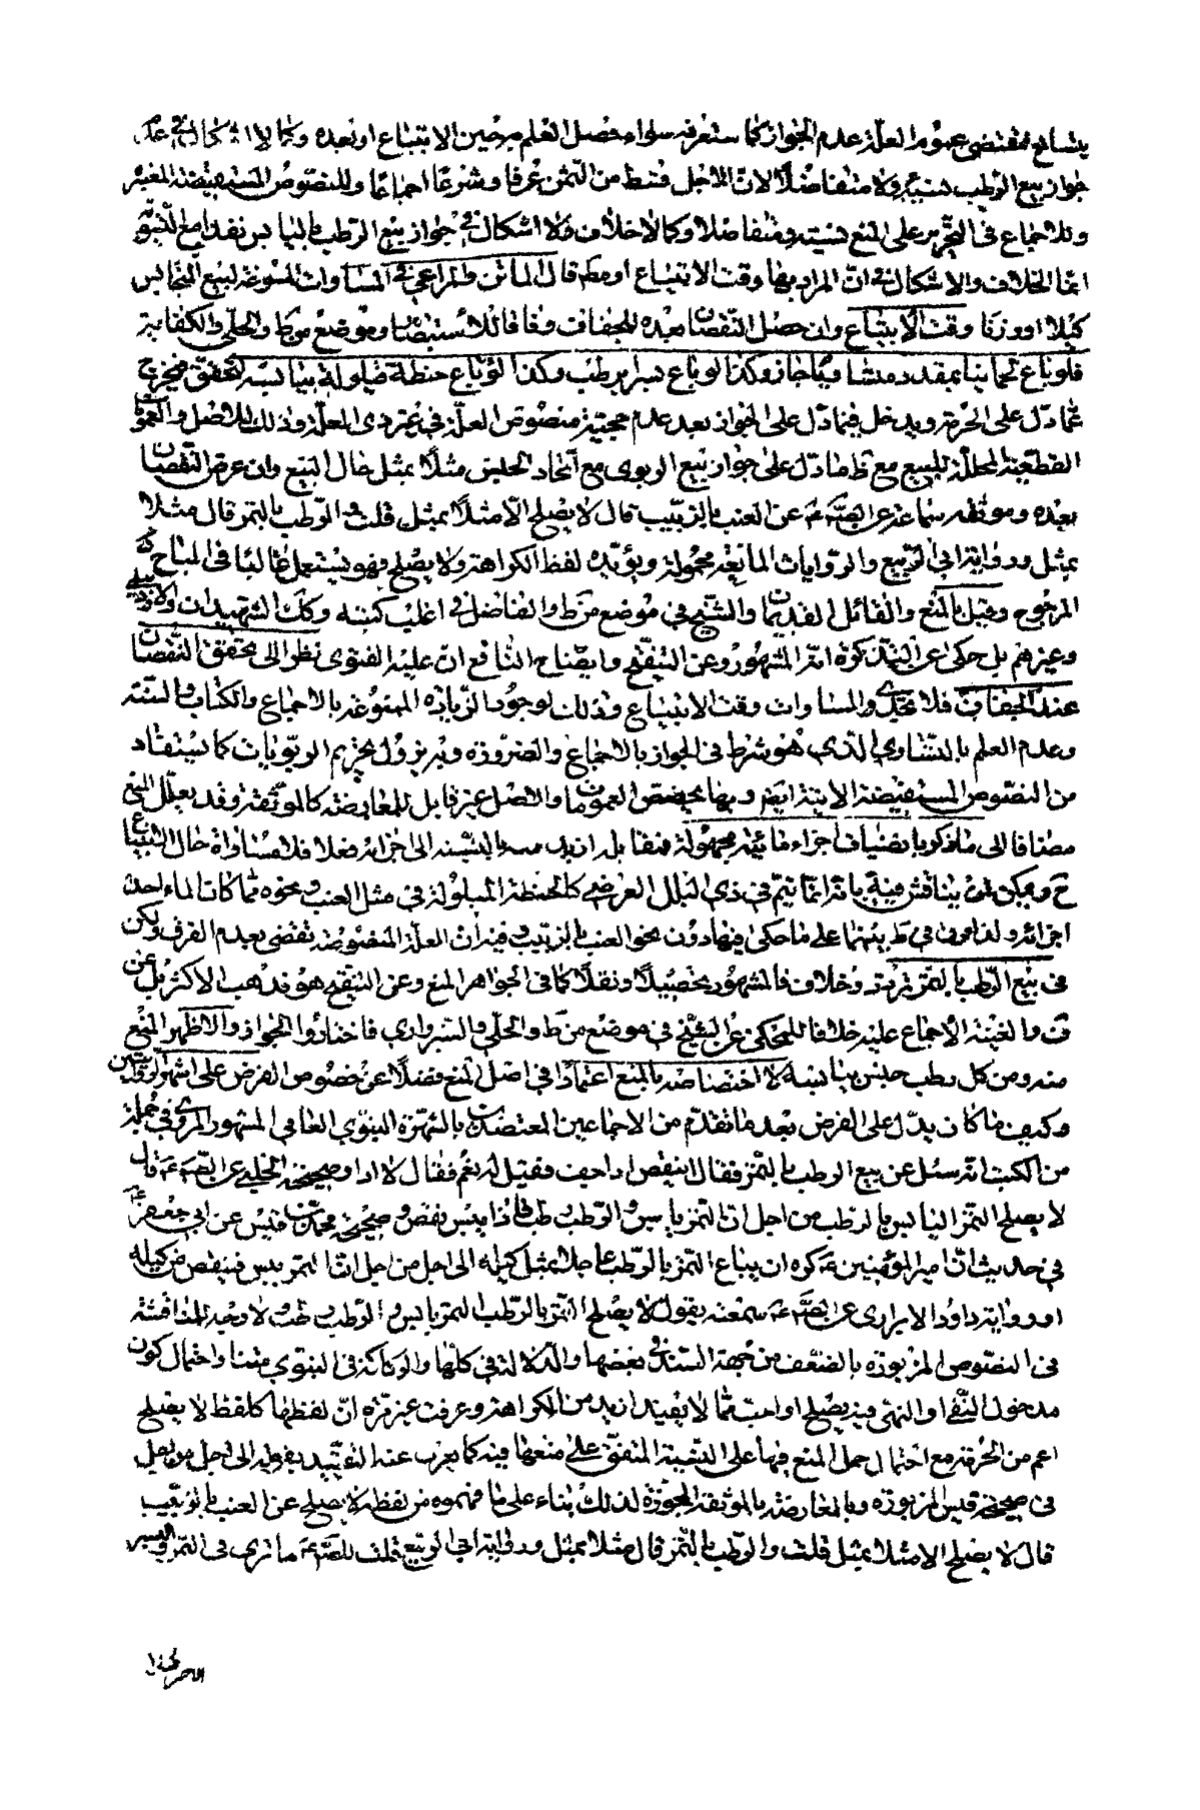 يتسامح فمقتضى عموم العلّة عدم الجواز كما ستعرفه سواء حصل العلم به حين الابتياع او بعده وكما لا اشكال في عدم
جواز بيع الرّطب نسيئة ولا متفاضلاً لانّ للاجل قسط من الثمن عرفا وشرعا اجماعا وللنصوص المستفيضة المغيّر
وللاجماع في التحرير على المنع نسيئة ومتفاضلا وكما لا خلاف ولا اشكال في جواز بيع الرّطب باليابس نقدا مع التغيّر
انّما الخلاف والاشكال في انّ المراد بها وقت الابتياع او مطلقا قال الماتن والمراعى في المساوات المسوغة لبيع المتجانس
كيلا او وزنا وقت الابتياع وان حصل النّقصان بعده للجفاف وفاقا للاستبصار وموضع من ط والحلّي والكفاية
فلو باع لحما نيا بمقدد متساويًا جاز وكذا لو باع بسرا برطب وكذا لو باع حنطة مبلولة بيابسة لتحقق
عمّا دلّ على الحرمة ويدخل فيما دلّ على الجواز بعد عدم حجيّة منصوص العلّة في غير ذي العلّة وذلك للاصل والعمومات
القطعيّة المحللة للبيع مع ما دلّ على جواز بيع الربوي مع اتحاد الجنس مثلاً بمثل حال البيع وان عرض النّقصان
بعده وموثقة سماعة عن الصّ عن العنب بالزبيب قال لا يصلح الّا مثلاً بمثل قلت والرّطب بالتمر قال مثلا
بمثل ورواية ابي الرّبيع والرّوايات المانعة محمولة ويؤيّده لفظ الكراهة ولا يصلح فهو يستعمل غالبا في المباح
المرجوح وقيل بالمنع والقائل القديمان والشّيخ في موضع من ط والفاضل في اغلب كتبه وكك الشهيدان
وغيرهم بل حكي عن التّذكرة انّه المشهور وعن التنقيح وايضاح النافع انّ عليه الفتوى نظرا الى تحقق النّقصان
عند الجفاف فلا تجدي المساوات وقت الابتياع وذلك لوجود الزّيادة الممنوعة بالاجماع والكتاب والسنّة
وعدم العلم بالتّساوي الّذي هو شرط في الجواز بالاجماع والضرورة وبه يزول تحريم الربويات كما يستفاد
من النّصوص المستفيضة الاتية ايضا وبها يخصّص العمومات والاصل غير قابل للمعارضة كالموثقة وقد يعلّل المنع
مضافا الى ما ذكر بانضياف اجزاء مائيّة مجهولة بالنّسبة الى اجزائه فلا مساواة حال الابتياع
ح ويمكن ان يناقش فيه بانّه انّما يتمّ في ذي البلل العرضي كالحنطة المبلولة في مثل العنب ونحوه ممّا كان الماء احد
اجزائه ولذا فرق في ط بينهما على ما حكي فيها دون نحو العنب بالزبيب وفيه انّ العلّة المنصوصة تقضى بعدم الفرق ولكن
في بيع الرّطب بالتمر خلاف فالمشهور تحصيلاً ونقلاً كما في الجواهر المنع وعن التنقيح هو مذهب الاكثر بل عن
ف والغنية الاجماع عليه خلافا للمحكي عن الشّيخ في موضع من ط والحلّي والسبزواري فاختاروا الجواز والاظهر المنع
منه ومن كل رطب جنس بيابسه لا اختصاصه بالمنع اعتمادًا في اصل المنع فضلًا عن خصوص الفرض على اشهر الروايتين
وكيف ما كان يدلّ على الفرض بعد ما تقدّم من الاجماعين المعتضدين بالشّهرة النبوّي العامي المشهور المروي في جملة
من الكتب انّه سئل عن بيع الرطب بالتّمر فقال اينقص اذا جف فقيل له نعم فقال لا اذا وصحيحة الحلبي عن الصّ قال
لا يصلح التمر اليابس بالرطب من اجل انّ التمر يابس والرّطب رطب فاذا يبس نقص وصحيحة محمد بن قيس عن ابي جعفر
في حديث انّ امير المؤمنين كره ان يباع التمر بالرّطب عاجلا بمثل كيله الى اجل من اجل انّ التمر ييبس فينقص من كيله
او رواية داود الابزاري عن الصّ سمعته يقول لا يصلح التمر بالرّطب التمر يابس والرّطب رطب لا وجه للمناقشة
في النّصوص المزبورة بالضّعف من جهة السّند في بعضها والدّلالة في كلّها والركاكة في النبوي متنا واحتمال كون
مدخول النّفي والنهي فيه يصلح او احبّ ممّا لا يفيد ازيد من الكراهة وعرفت غير مرّة انّ لفظها كلفظ لا يصلح
اعم من الحرمة مع احتمال حمل المنع فيها على النّسيئة المتفق على منعها فيه كما يعرب عنه التقييد بقوله الى اجل من اجل
في صحيحة قيس المزبورة وبالمعارضة بالموثقة المجوّزة لذلك بناء على ما فهموه من لفظه لا يصلح عن العنب بالزبيب
قال لا يصلح الا مثلا بمثل قلت والرّطب بالتّمر قال مثلا بمثل ورواية ابي الرّبيع قلت للصّ ما ترى في التمر والبسر
الاحمر